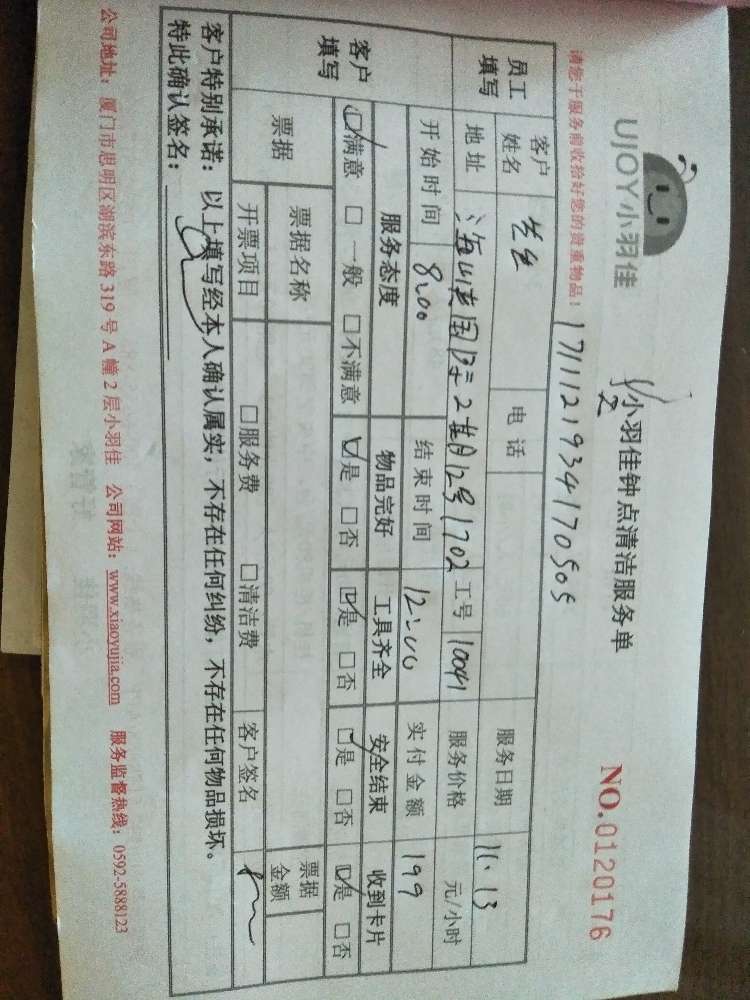 UJOY小羽佳
小羽佳钟点清洁服务单
2
NO.0120176
请您于服务前收拾好您的贵重物品!
1711121934170505
员工填写
客户姓名
电话
服务日期 11.13
地址 2 12号1702
工号 10041
服务价格 元/小时
开始时间 8:00
结束时间 12:00
实付金额 199
客户填写
服务态度 物品完好 工具齐全 安全结束 收到卡片
□满意 □一般 □不满意 □是 □否 □是 □否 □是 □否 □是 □否
票据
票据名称
票据金额
开票项目 □服务费 □清洁费 客户签名
客户特别承诺:以上填写经本人确认属实,不存在任何纠纷,不存在任何物品损坏。
特此确认签名:
公司地址:厦门市思明区湖滨东路 319 号 A 幢 2 层小羽佳 公司网站:www.xiaoyujia.com 服务监督热线:0592-5888123